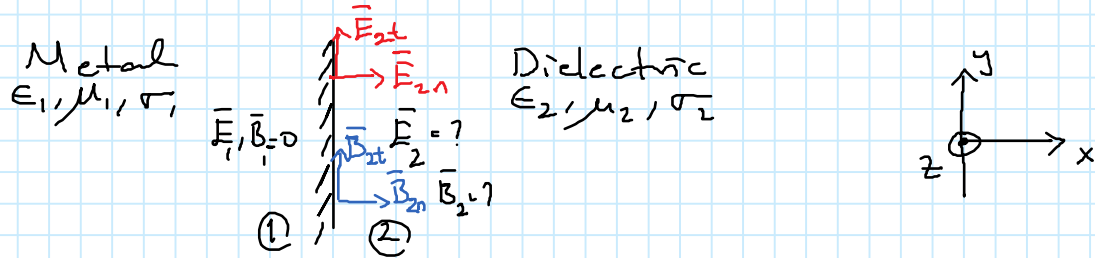 Metal
ϵ₁, μ₁, σ₁
E̅₁, B̅₁=0
E̅₂t
E̅₂n
B̅₂t
B̅₂n
E̅₂ = ?
B̅₂ = ?
① ②
Dielectric
ϵ₂, μ₂, σ₂
y
x
z